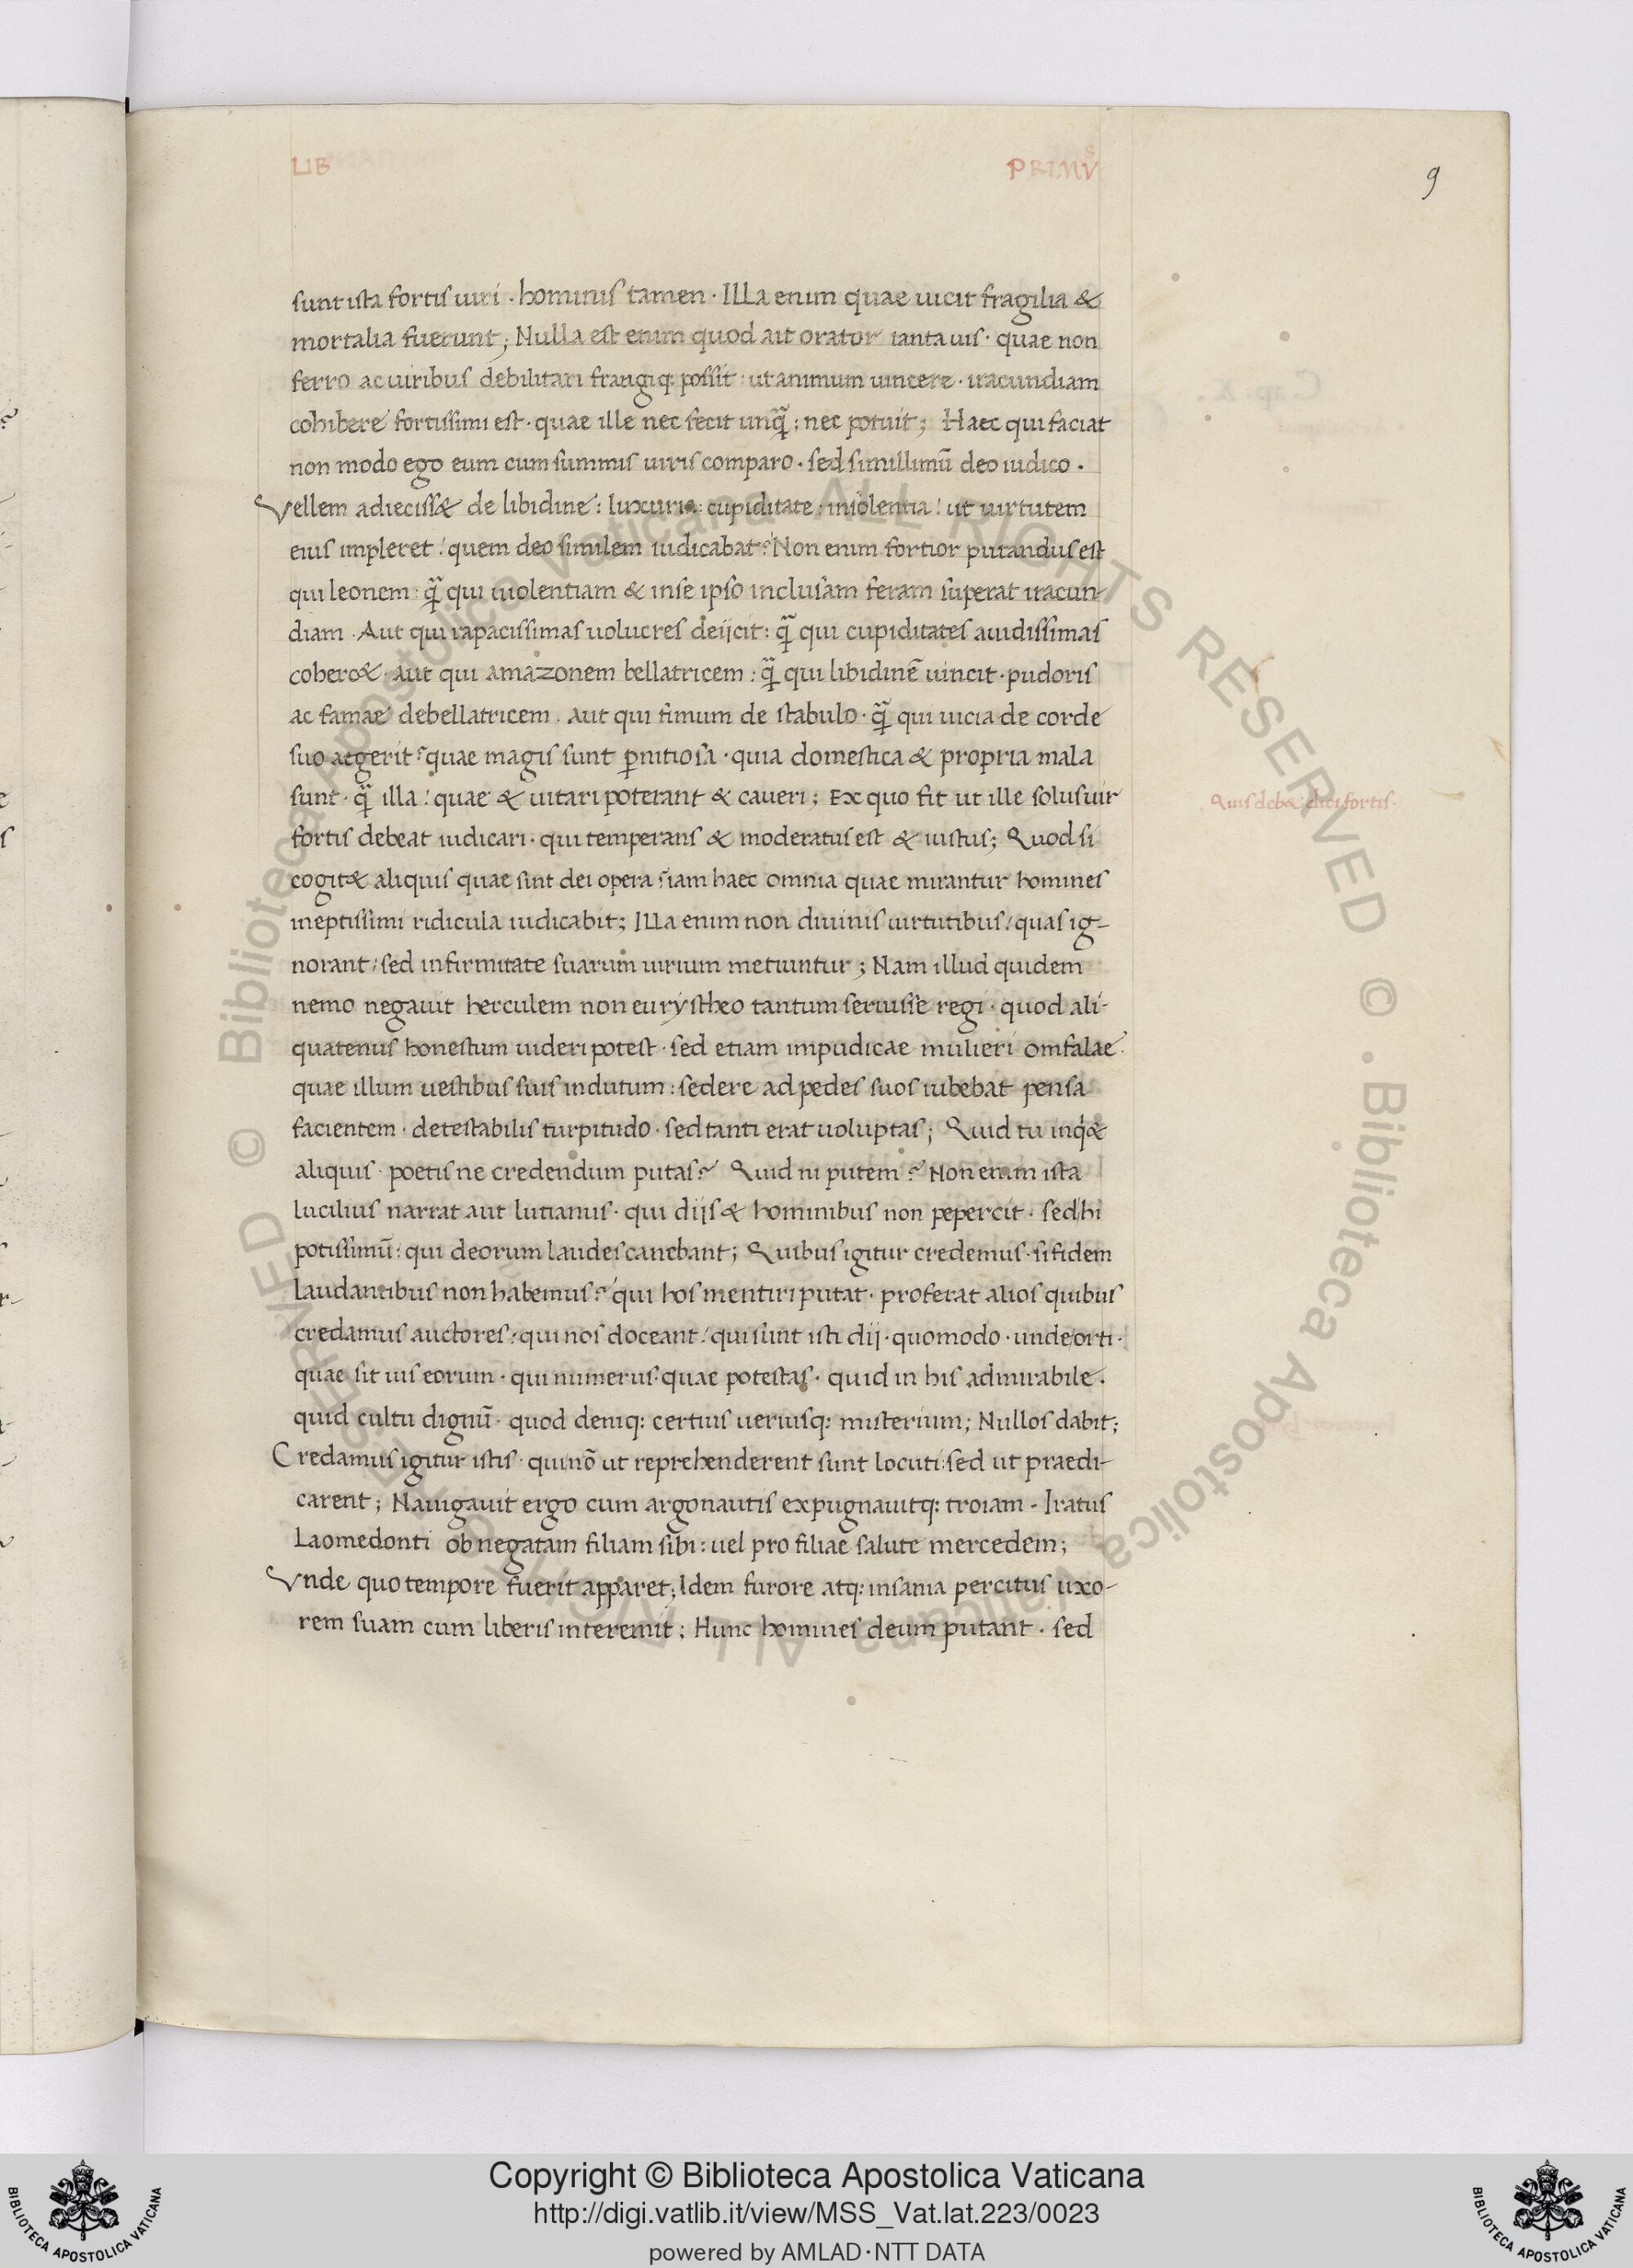 LIB PRIMVS
9
sunt ista fortis uiri · hominis tamen · Illa enim quae uicit fragilia &
mortalia fuerunt; Nulla est enim quod ait orator tanta uis · quae non
ferro ac uiribus debilitari frangiq: possit : ut animum uincere · iracundiam
cohibere fortissimi est · quae ille nec fecit unq̃ ; nec potuit ; Haec qui faciat
non modo ego eum cum summis uiris comparo · sed simillimū deo iudico ·
Vellem adieciss& de libidine : luxuria : cupiditate : insolentia ! ut uirtutem
eius impleret ! quem deo similem iudicabat? Non enim fortior putandus est
qui leonem : q̃ qui uiolentiam & in se ipso inclusam feram superat iracun-
diam · Aut qui rapacissimas uolucres deijcit : q̃ qui cupiditates auidissimas
coherc& · aut qui amazonem bellatricem : q̃ qui libidinē uincit · pudoris
ac famae debellatricem · aut qui fimum de stabulo · q̃ qui uicia de corde
suo aegerit? quae magis sunt ꝑnitiosa · quia domestica & propria mala
sunt · q̃ illa ! quae & uitari poterant & caueri ; Ex quo fit ut ille solus uir
Quis deb& dici fortis ·
fortis debeat iudicari · qui temperans & moderatus est & iustus ; Quod si
cogit& aliquis quae sint dei opera iam haec omnia quae mirantur homines
ineptissimi ridicula iudicabit ; Illa enim non diuinis uirtutibus ! quas ig-
norant ! sed infirmitate suarum uirium metiuntur ; Nam illud quidem
nemo negauit herculem non eurystheo tantum seruisse regi · quod ali-
quatenus honestum uideri potest · sed etiam impudicae mulieri omfalae ·
quae illum uestibus suis indutum : sedere ad pedes suos iubebat pensa
facientem · detestabilis turpitudo · sed tanti erat uoluptas ; Quid tu inq&
aliquis · poetis ne credendum putas? Quid ni putem? Non enim ista
lucilius narrat aut lutianus · qui dijs & hominibus non pepercit · sed hi
potissimū : qui deorum laudes canebant ; Quibus igitur credemus · si fidem
laudantibus non habemus? qui hos mentiri putat · proferat alios quibus
credamus auctores ! qui nos doceant ! qui sunt isti dij · quomodo · unde orti ·
quae sit uis eorum · qui numerus · quae potestas · quid in his admirabile ·
quid cultu dignū · quod deniq: certius ueriusq: misterium ; Nullos dabit ;
Credamus igitur istis · qui nō ut reprehenderent sunt locuti : sed ut praedi-
carent ; Nauigauit ergo cum argonautis expugnauitq: troiam - Iratus
Laomedonti ob negatam filiam sibi : uel pro filiae salute mercedem ;
Vnde quo tempore fuerit apparet ; Idem furore atq: insania percitus uxo-
rem suam cum liberis interemit ; Hunc homines deum putant · sed
© Biblioteca Apostolica Vaticana ALL RIGHTS RESERVED © · Biblioteca Apostolica Vaticana ALL RIGHTS RESERVED
Copyright © Biblioteca Apostolica Vaticana
http://digi.vatlib.it/view/MSS_Vat.lat.223/0023
powered by AMLAD·NTT DATA
BIBLIOTECA APOSTOLICA VATICANA
BIBLIOTECA APOSTOLICA VATICANA